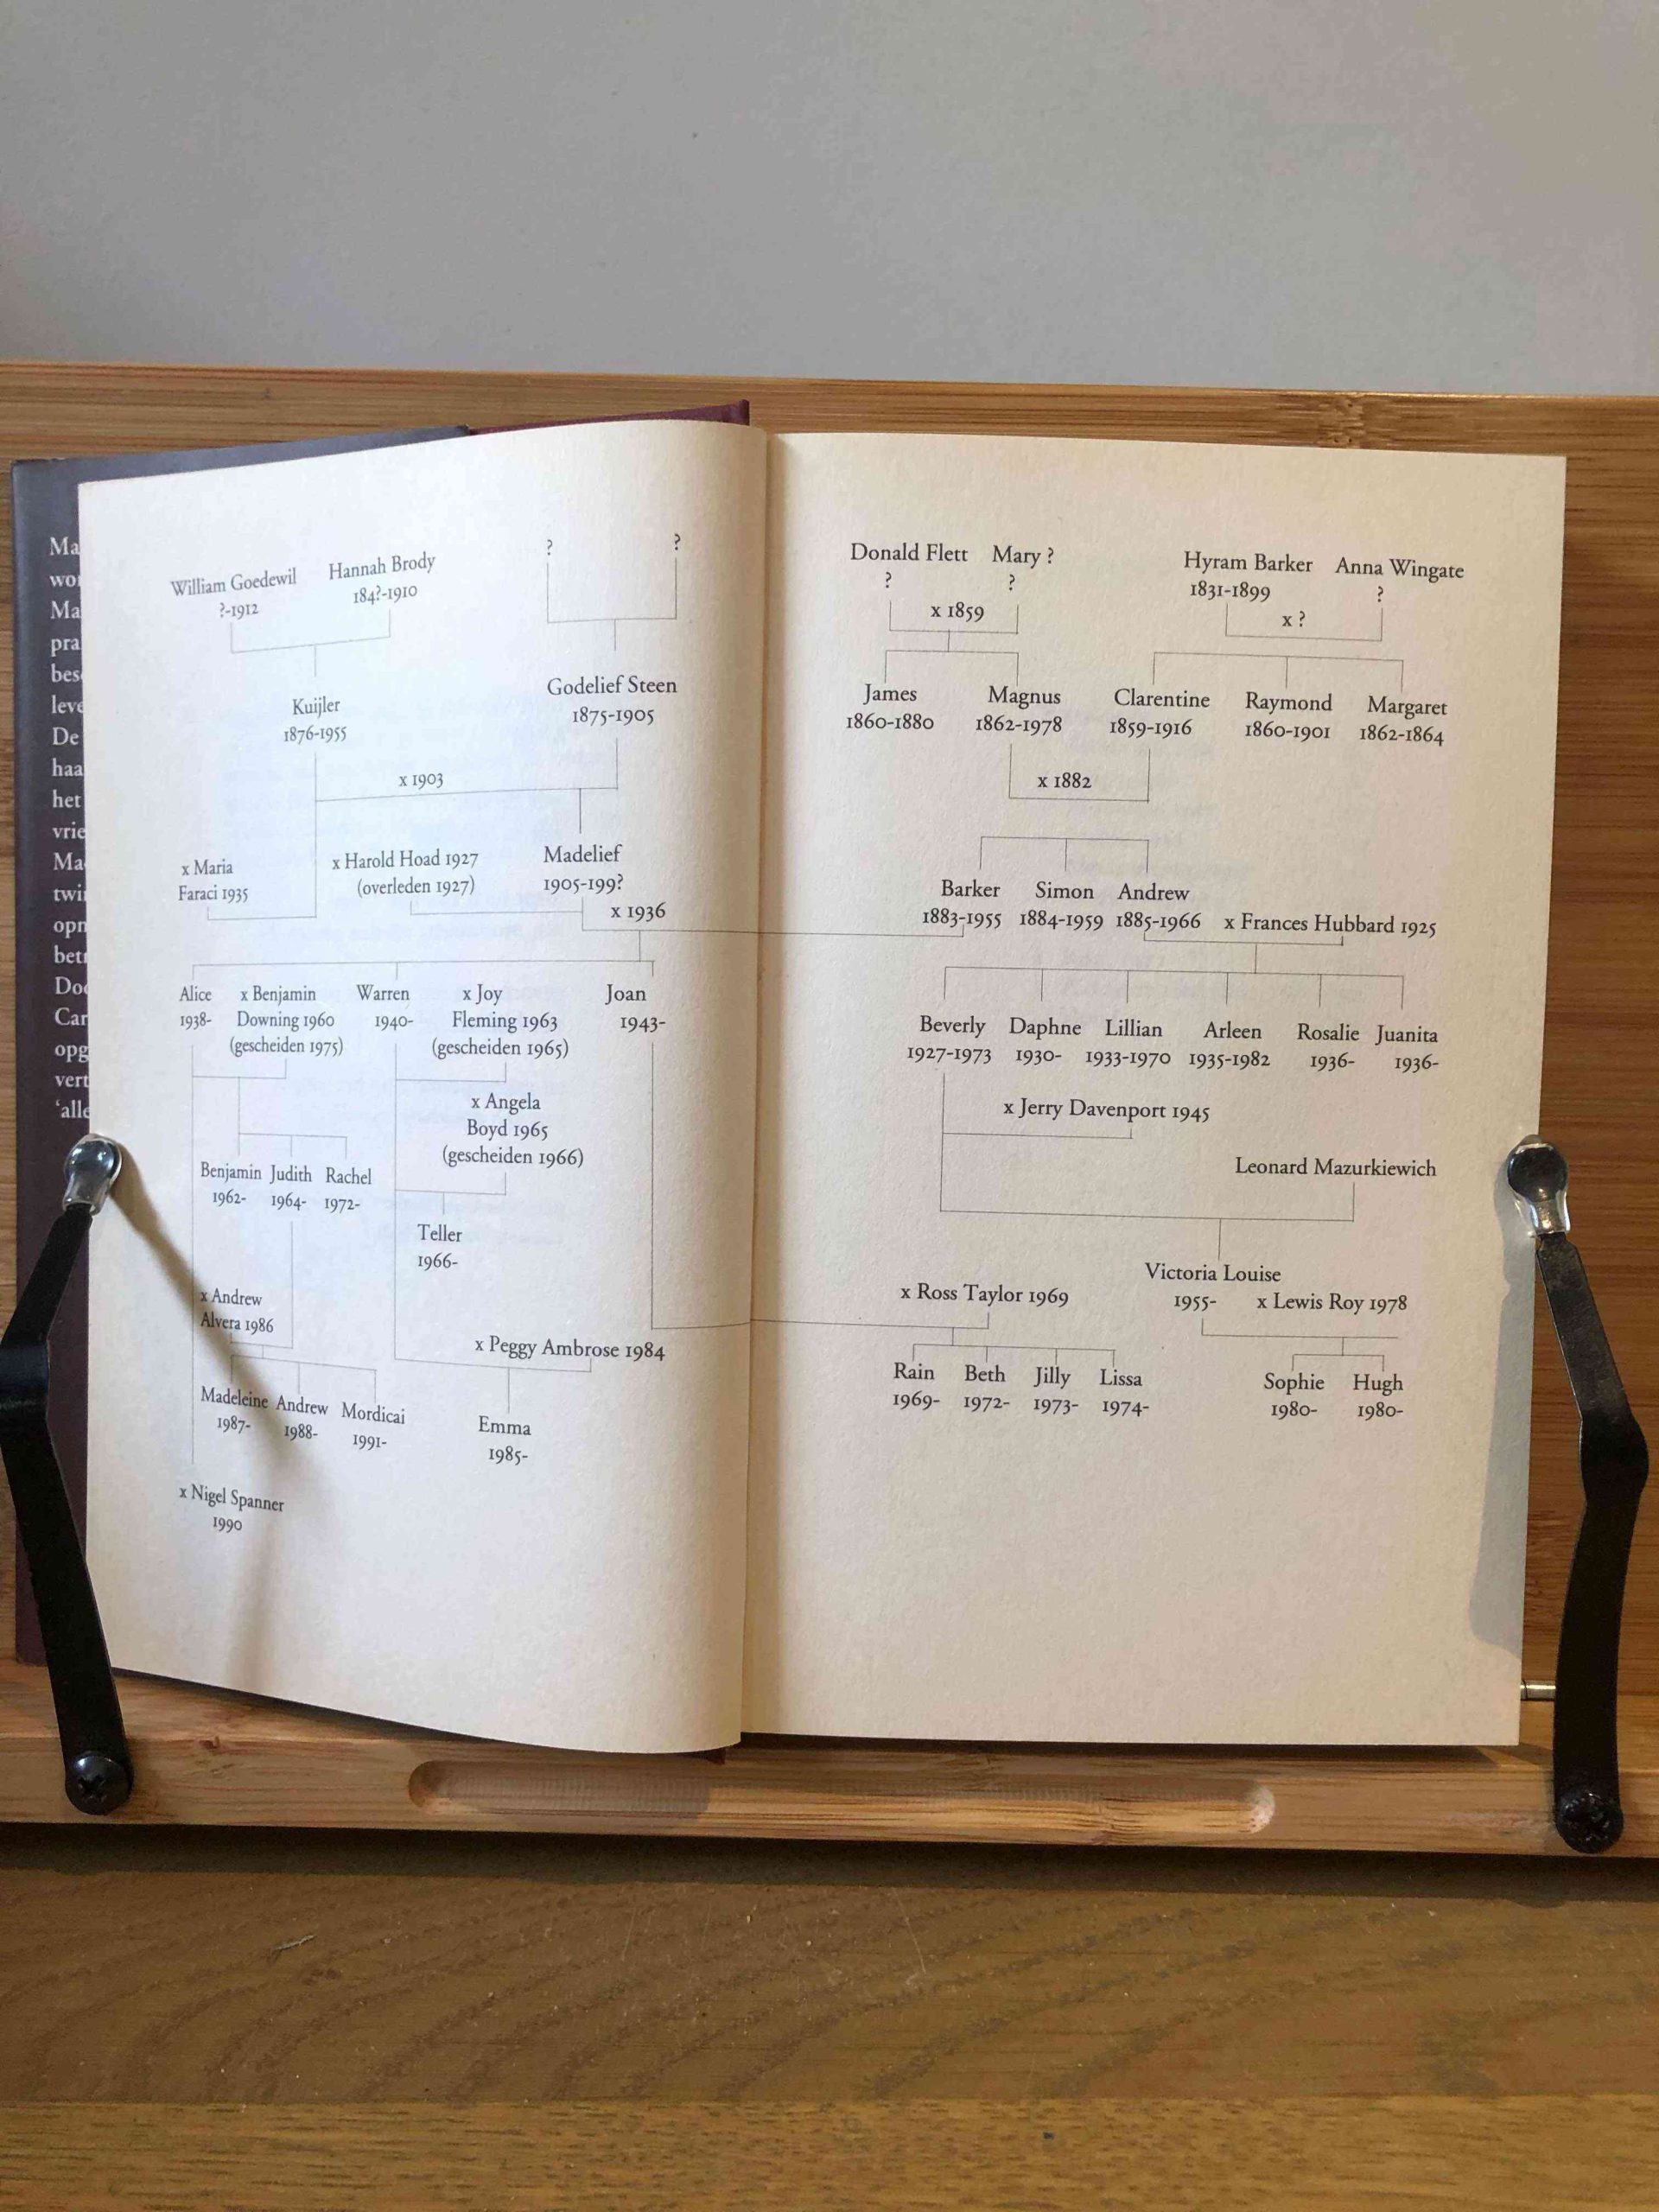 Ma
wo
Ma
pra
bes
leve
De
haa
het
vrie
Ma
twi
opn
bet
Do
Car
opg
vert
‘alle
? ?
William Goedewil Hannah Brody
?-1912 184?-1910
Godelief Steen
Kuijler 1875-1905
1876-1955
x 1903
x Maria x Harold Hoad 1927 Madelief
Faraci 1935 (overleden 1927) 1905-199?
x 1936
Alice x Benjamin Warren x Joy Joan
1938- Downing 1960 1940- Fleming 1963 1943-
(gescheiden 1975) (gescheiden 1965)
x Angela
Boyd 1965
(gescheiden 1966)
Benjamin Judith Rachel
1962- 1964- 1972-
Teller
1966-
x Andrew
Alvera 1986
x Peggy Ambrose 1984
Madeleine Andrew Mordicai
1987- 1988- 1991-
Emma
1985-
x Nigel Spanner
1990
Donald Flett Mary ? Hyram Barker Anna Wingate
? ? 1831-1899 ?
x 1859 x ?
James Magnus Clarentine Raymond Margaret
1860-1880 1862-1978 1859-1916 1860-1901 1862-1864
x 1882
Barker Simon Andrew
1883-1955 1884-1959 1885-1966 x Frances Hubbard 1925
Beverly Daphne Lillian Arleen Rosalie Juanita
1927-1973 1930- 1933-1970 1935-1982 1936- 1936-
x Jerry Davenport 1945
Leonard Mazurkiewich
Victoria Louise
x Ross Taylor 1969 1955- x Lewis Roy 1978
Rain Beth Jilly Lissa Sophie Hugh
1969- 1972- 1973- 1974- 1980- 1980-